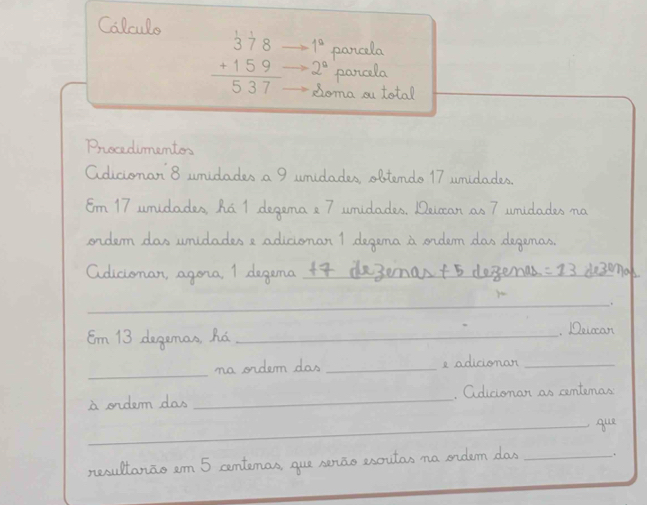 Cálculo
1 1
378 → 1ª parcela
+ 159 → 2ª parcela
537 → Soma ou total
Procedimentos
Adicionar 8 unidades a 9 unidades, obtendo 17 unidades.
Em 17 unidades, há 1 dezena e 7 unidades. Deixar as 7 unidades na
ordem das unidades e adicionar 1 dezena à ordem das dezenas.
Adicionar, agora, 1 dezena +7 dezenas + 5 dezenas = 13 dezenas
.
Em 13 dezenas, há ______. Deixar
______ na ordem das ______ e adicionar ______
à ordem das ______. Adicionar as centenas:
______, que
resultarão em 5 centenas, que serão escritas na ordem das ______.